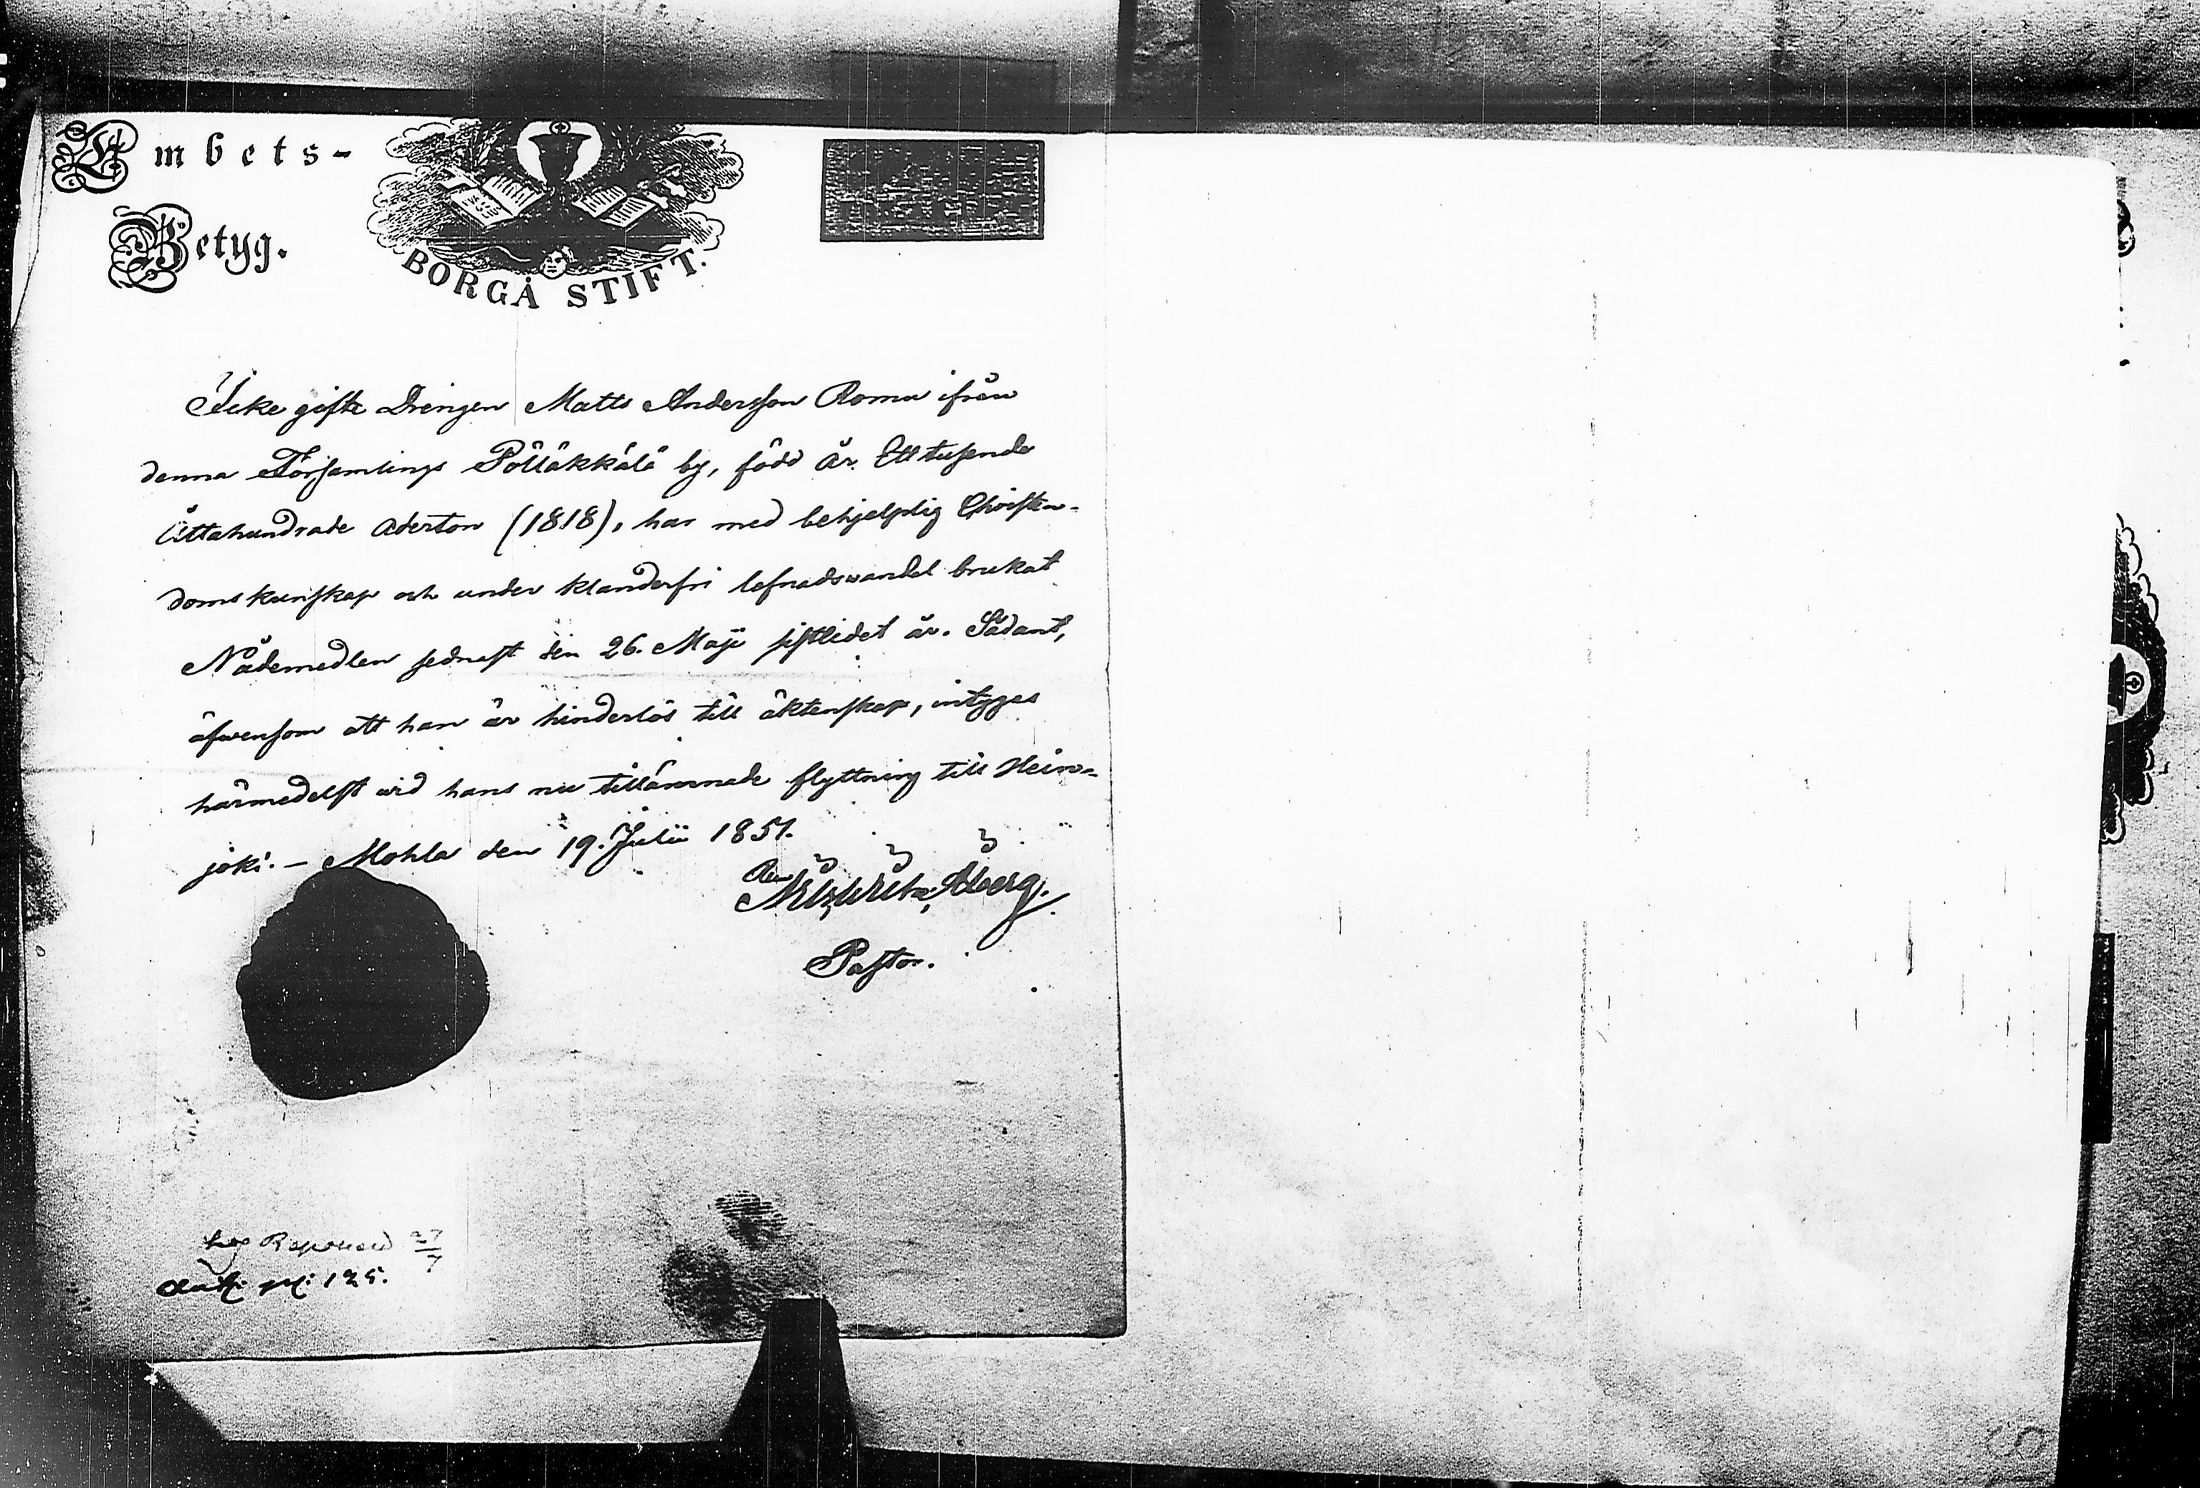 Embets-
Betyg.
BORGÅ STIFT.
Icke gifte Drengen Matts Andersson Romu ifrån
denna Församlings Pölläkkälä by, född år Ettusende
Åttahundrade aderton (1818), har med behjelplig Christen-
doms kunskap och under klanderfri lefnadswandel brukat
Nådemedlen sednast den 26. Maji sistlidet år. Sådant,
äfwensom att han är hinderlös till äktenskap, intygas
härmedelst wid hans nu tillämnade flyttning till Hein-
joki. – Mohla den 19. Julii 1851.
Åberg.
Pastor.
27/7
125.